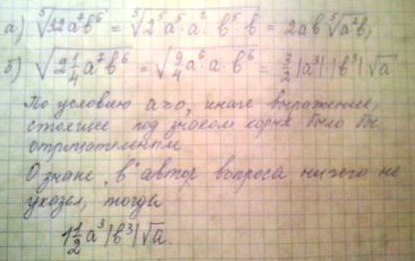 а) ⁵√32a⁷b⁶ = ⁵√2⁵a⁵·a² b⁵·b = 2ab ⁵√a²b,
б) √2 1/4 a⁷b⁶ = √9/4 a⁶·a·b⁶ = 3/2 |a³|·|b³| √a
По условию a≥0, иначе выражение,
стоящее под знаком корня было бы
отрицательным
О знаке "в" автор вопроса ничего не
указал, тогда
1 1/2 a³|b³|√a.